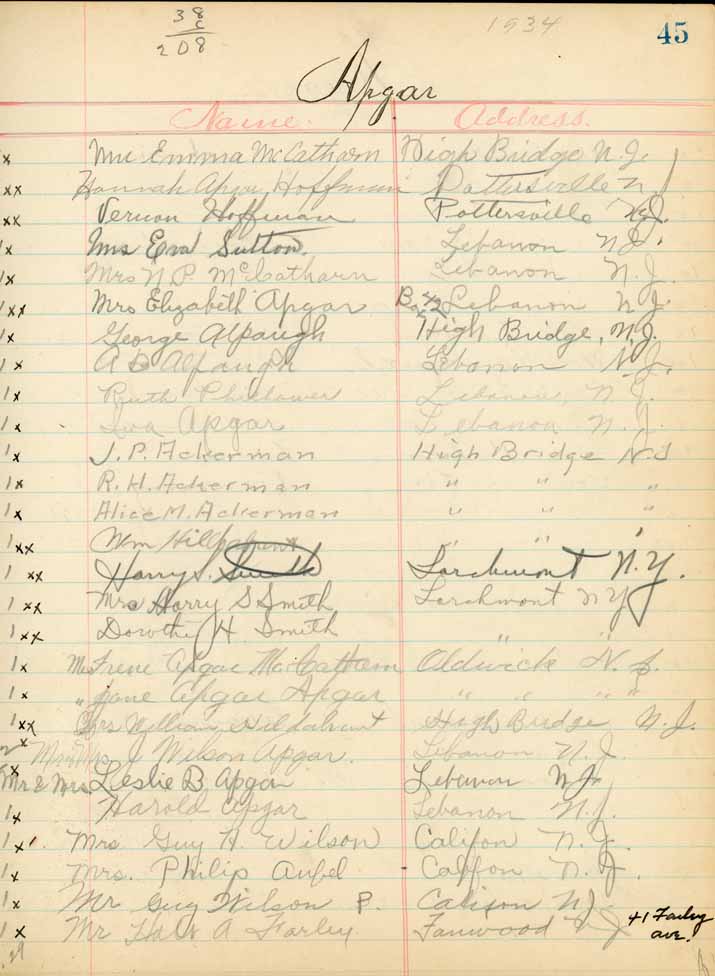 38
208
1934
45
Apgar
Name. Address.
x Mrs Emma McCatharn High Bridge N.J.
xx Hannah Apgar Hoffman Pottersville N.J.
xx Vernon Hoffman Pottersville N.J.
1x Mrs Eva Sutton. Lebanon N.J.
1x Mrs N P McCatharn Lebanon N.J.
1xx Mrs Elizabeth Apgar Box 42 Lebanon N J.
1x George Alpaugh High Bridge, N.J.
1x A B Alpaugh Lebanon N.J.
1x Ruth Philower Lebanon, N.J.
1x Iva Apgar Lebanon N.J.
1x J.P. Ackerman High Bridge N.J
1x R.H. Ackerman " " "
1x Alice M. Ackerman " " "
1xx Wm Hildabrant " " "
1 xx Harry S. Smith Larchmont N.Y.
1xx Mrs Harry S Smith Larchmont N Y
1xx Dorothy H Smith " "
1x Mrs Irene Apgar McCatharn Oldwick N.J.
1x " Jane Apgar Apgar " " " "
1xx Mrs William Hildabrant High Bridge N.J.
2x Mr & Mrs J Wilson Apgar. Lebanon N.J.
x Mr & Mrs Leslie B. Apgar Lebanon N.J.
1x Harold Apgar Lebanon N.J.
1x. Mrs Guy H. Wilson Califon N.J.
1x Mrs. Philip Aubel Califon N.J.
1x Mr Guy Wilson P. Califon N.J.
1x Mr A Farley Fanwood N J 41 Farley
ave.
29